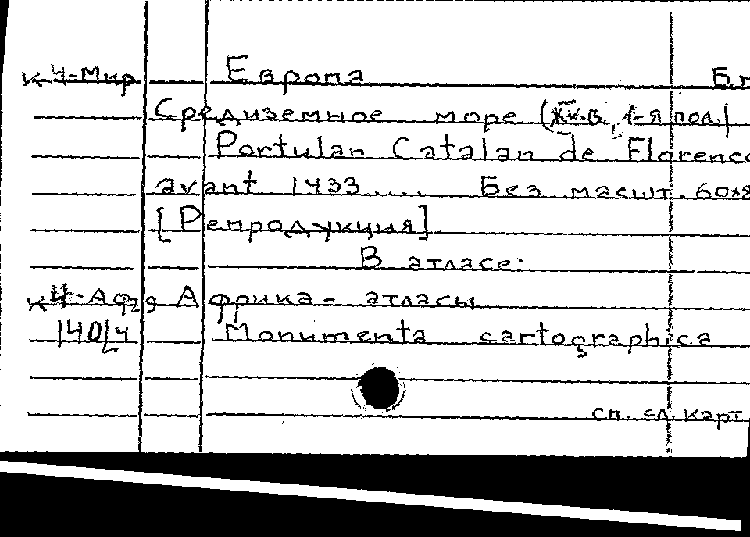 к Ч-Мир Европа Б.г
Средиземное море (XV в., 1-я пол.)
Portulan Catalan de Florence
avant 1433.... Без масшт. 60х8
[Репродукция]
В атласе:
Африка - атласы
140/4 Monumenta cartographica
сл. ед. карт